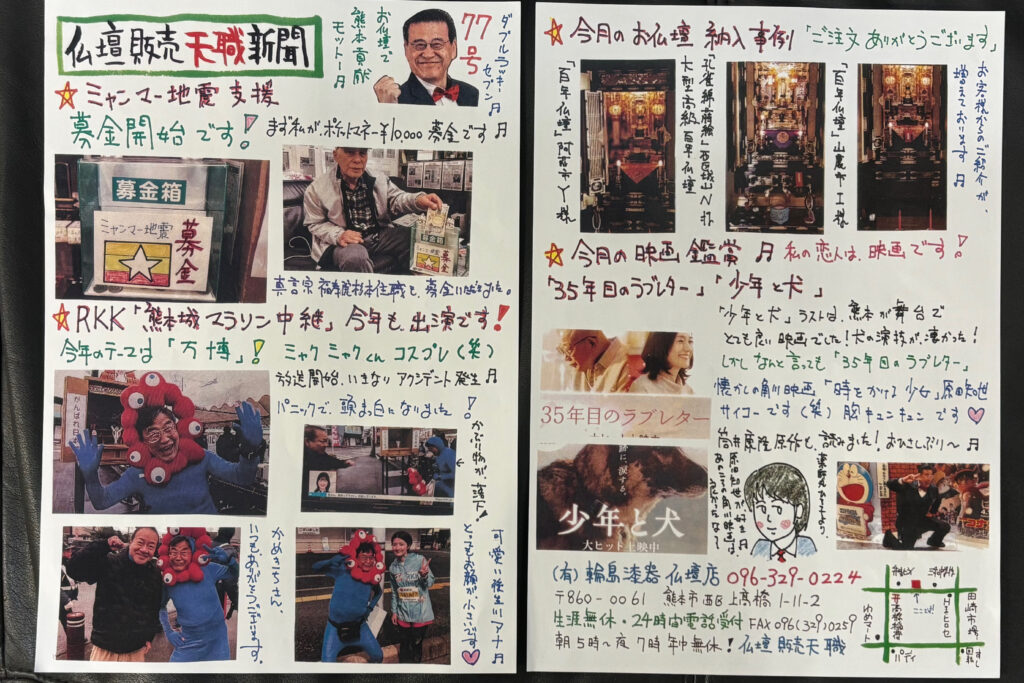 仏壇販売天職新聞
77号
ダブルラッキーセブン♬
お仏壇で
熊本貢献
モットー♬
☆ミャンマー地震支援
募金開始です!
まず私が、ポケットマネー¥10,000募金です♬
募金箱
ミャンマー地震
募金
募金箱
募金
☆RKK「熊本城マラソン中継」今年も出演です!
今年のテーマは「万博」!
ミャクミャクくんコスプレ(笑)
放送開始、いきなりアクシデント発生♬
パニックで、頭ま白になりました!
かぶり物が、落下!
がんばれ
かめきちさん、
いつもありがとうございます。
可愛い後生川アナ♬
とってもお顔が、小さいです♡
☆今月のお仏壇納入事例「ご注文ありがとうございます」
お客様からのご紹介が、
増えております♬
「百年仏壇」山鹿市I様
大型高級百年仏壇
「百年仏壇」阿蘇市Y様
☆今月の映画鑑賞♬私の恋人は、映画です!
「35年目のラブレター」「少年と犬」
「少年と犬」ラストは、熊本が舞台で
とても良い映画でした!犬の演技が、凄かった!
しかしなんと言っても「35年目のラブレター」
懐かしの角川映画「時をかける少女」原田知世
サイコーです(笑)胸キュンキュンです♡
筒井康隆原作も、読みました!おひさしぶり〜♬
35年目のラブレター
大ヒット上映中
少年と犬
大ヒット上映中
原田知世が好き♬
あのころの角川映画は、
(有)輪島漆器仏壇店 096-329-0224
〒860-0061 熊本市西区上高橋1-11-2
生涯無休・24時間電話受付 FAX096(329)0259
朝5時〜夜7時年中無休!仏壇販売天職
ここ!
高橋稲荷
田崎市場